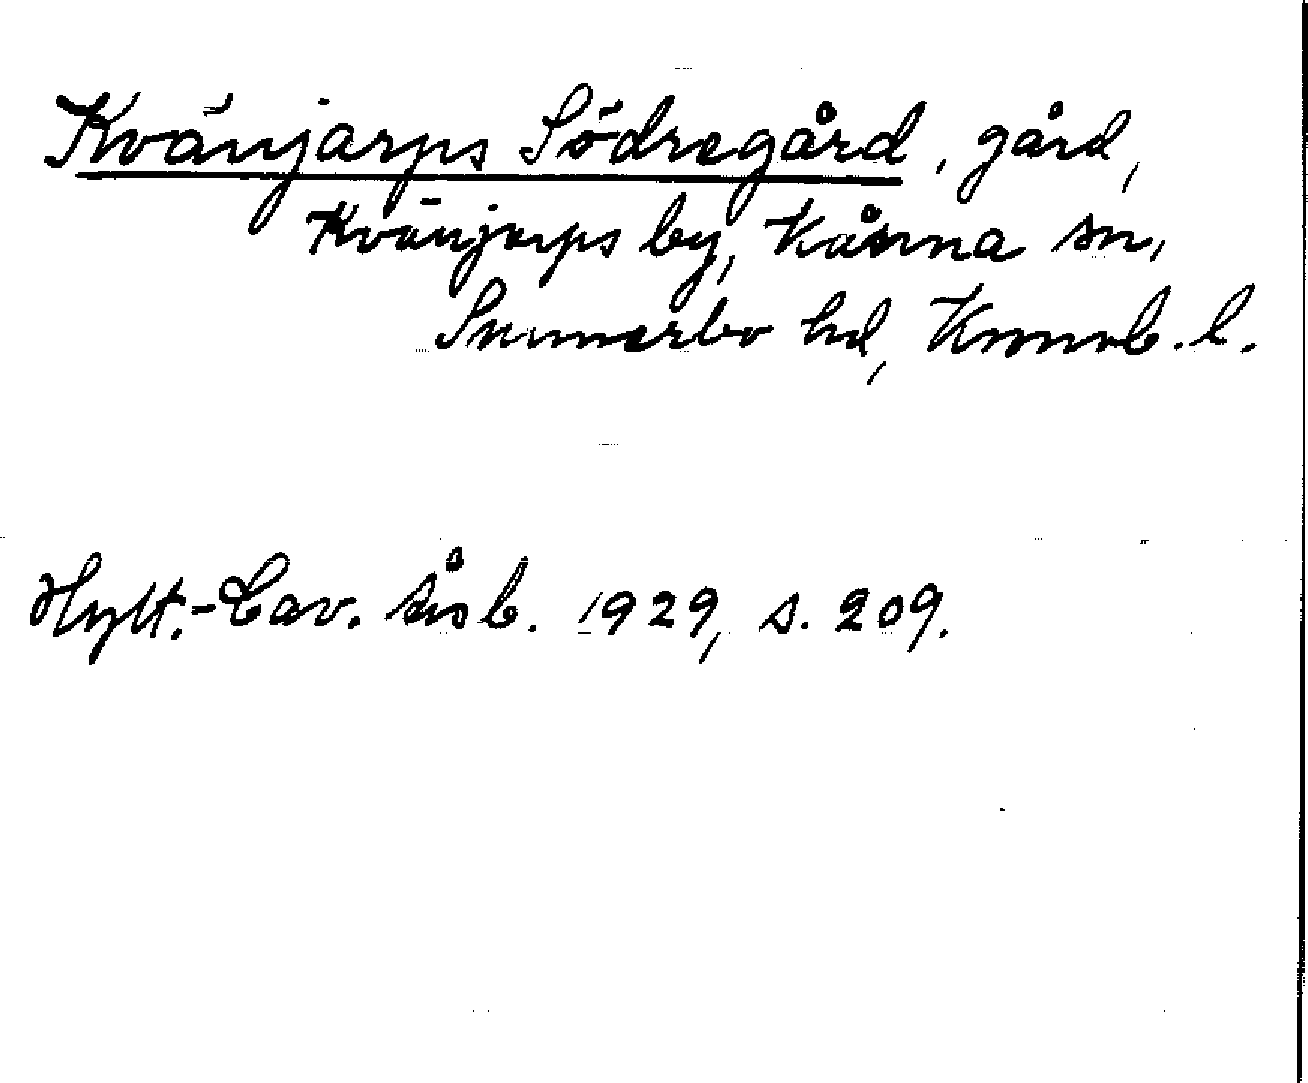 Kvänjarps Södregård, gård,
Kvänjarps by, Kånna sn,
Sunnerbo hd, Kronob. l.
Hylt.-Cav. årsb. 1929, s. 209.